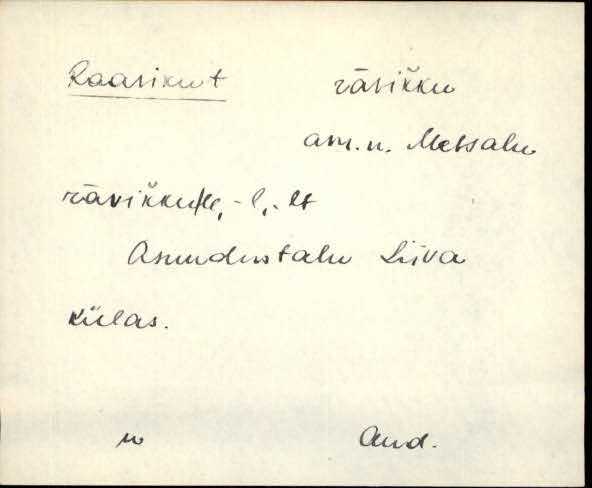 Raasikut rāsik̆ku
asu.n. Metsalu
rāsik̆kulle, -l, -lt
Asundustalu Liiva
külas.
n And.